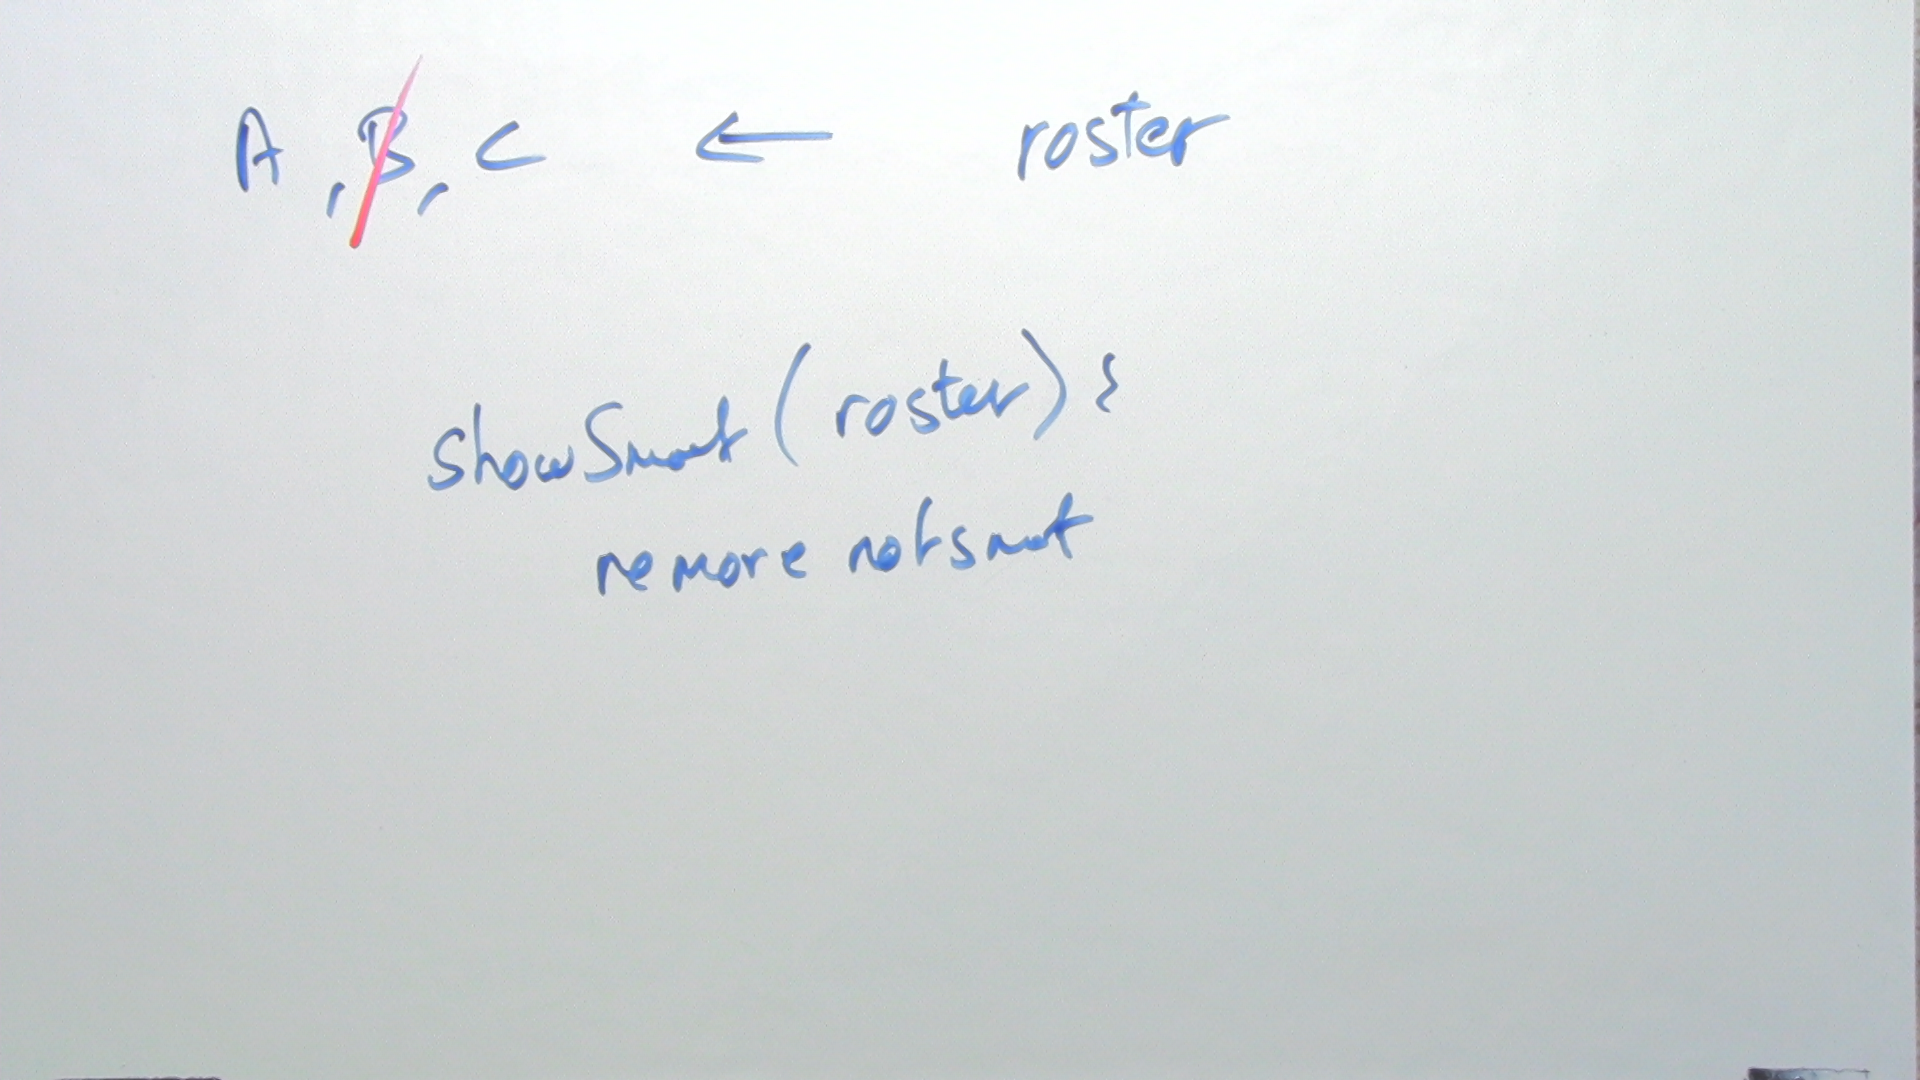 A, B, C ← roster
showSmart(roster) {
remove notsmart